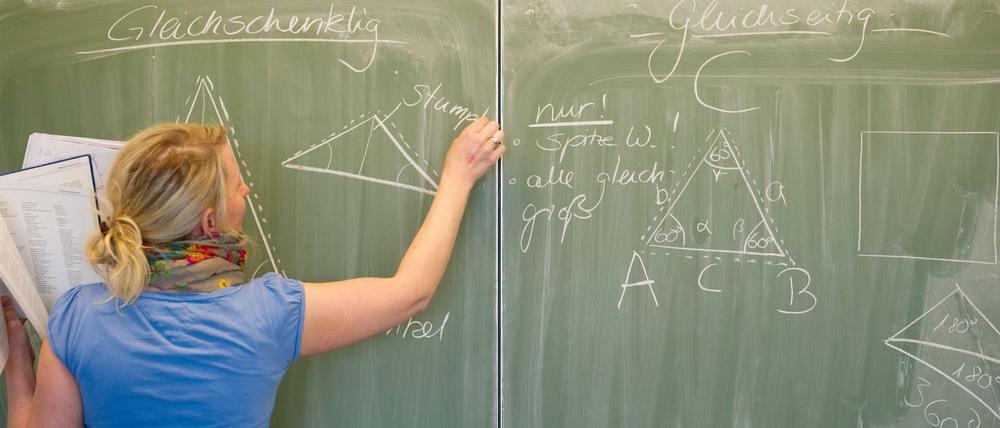 Gleichschenklig
Stump
Gleichseitig
C
nur!
spitze W. !
alle gleich
groß
60°
γ
b
a
60°
α
β
60°
A
C
B
180°
180°
360